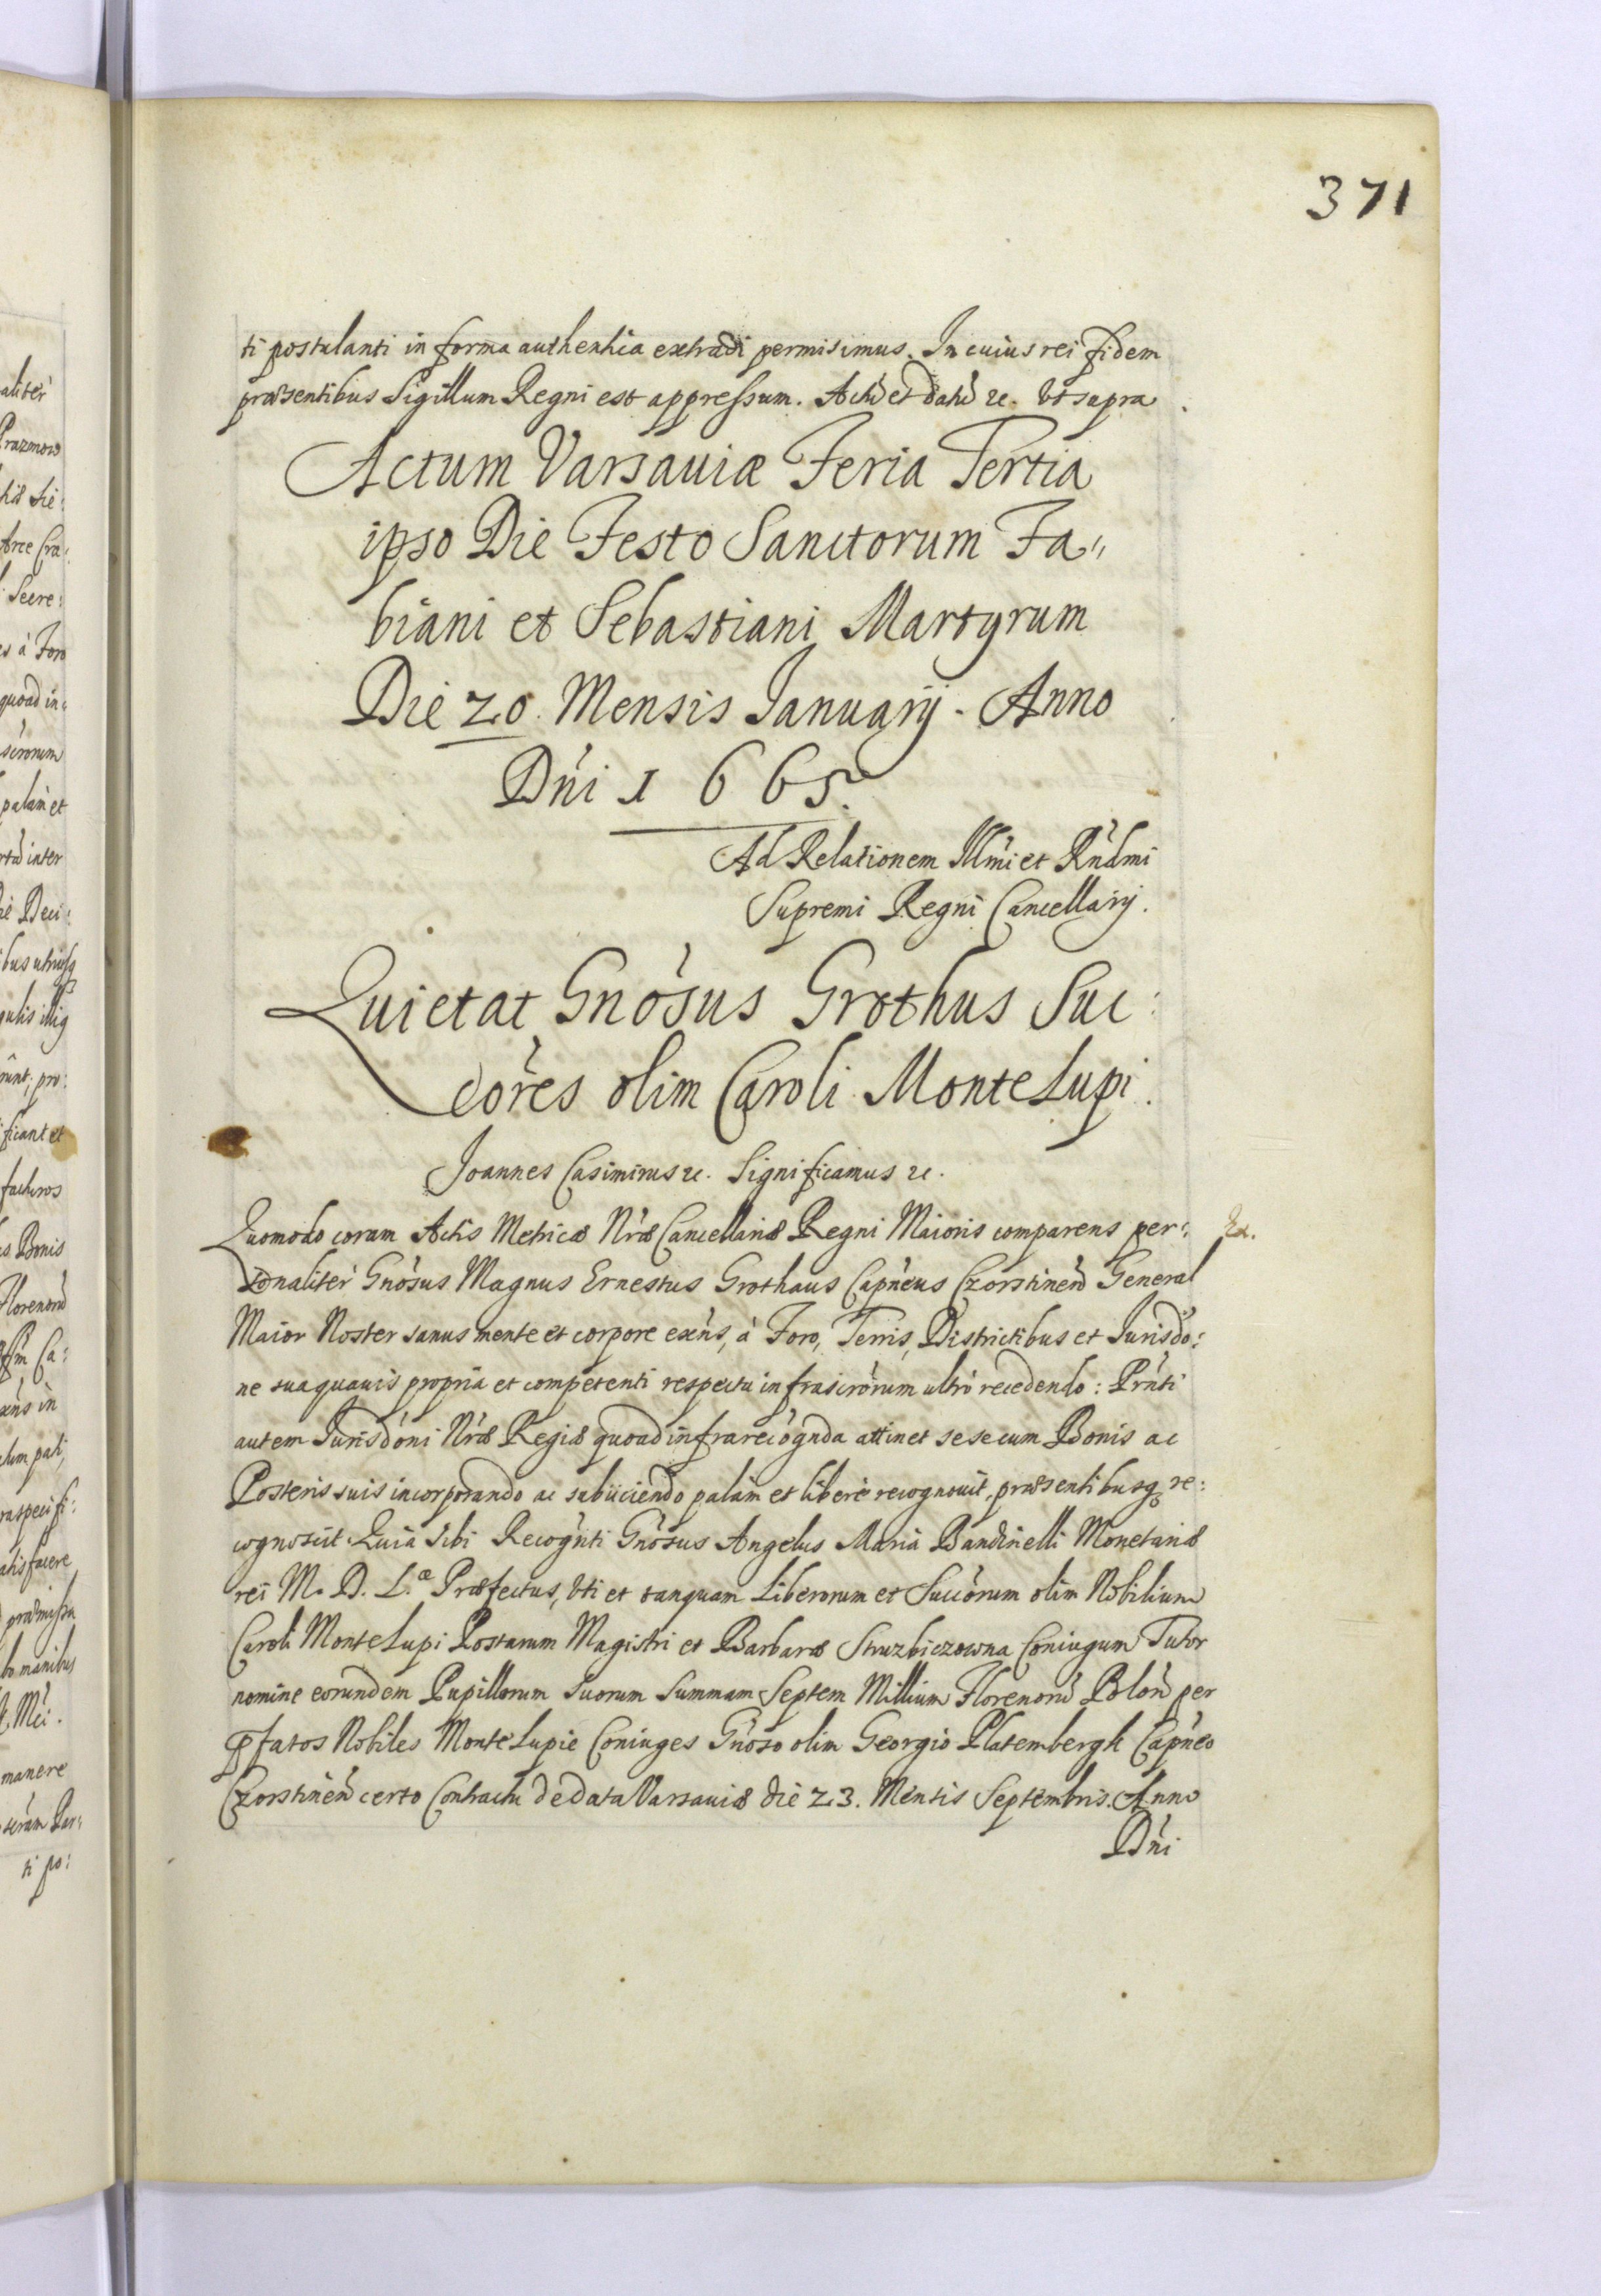 371
ti postulanti in forma authentica extradi permisimus. In cuius rei fidem
præsentibus Sigillum Regni est appressum. Actũ et datũ &c. Vt supra
Actum Varsauiæ Feria Tertia
ipso Die Festo Sanctorum Fa„
biani et Sebastiani Martyrum
Die 20. Mensis Ianuarij. Anno
Dńi 1665.
Ad Relationem Illm̃i et Rńdmi
Supremi Regni Cancellarij.
Quietat Gnõsus Grothus Suc:
cõres olim Caroli MonteLupi.
Joannes Casimirus &c. Significamus &c.
Quomodo coram Actis Metricæ Nræ Cancellariæ Regni Maioris comparens per: Ex.
sonaliter Gnõsus Magnus Ernestus Grothaus Capńeus Czorstineñ General
Maior Noster sanus mente et corpore exẽns, à Foro, Terris, Districtibus et Jurisdõ:
ne sua quauis propria et competenti respectu infrascrõrum ultrò recedendo: Prńti
autem Jurisdõni Nræ Regiæ quoad infrarecõgnda attinet sese cum Bonis ac
Posteris suis incorporando ac subijciendo palàm et liberè recognouit, præsentibusq̃ re:
cognoscit. Quia sibi Recogńti Gnõsus Angelus Maria Bandinelli Monetariæ
rei M. D. L.æ Præfectus, Vti et tanquam Liberorum et Succõrum olim Nobilium
Caroli MonteLupi Postarum Magistri et Barbaræ Struzbiczowna Coniugum Tutor
nomine eorundem Pupillorum suorum Summam Septem Millium Florenorũ Poloñ per
p̃fatos Nobiles MonteLupie Coniuges Gnõso olim Georgio Platembergk Capńeo
Czorstineñ certo Contractu de data Varsauiæ die 23. Mensis Septembris. Anno
Dńi
aliter
Prazmow
Arce Cra:
Secre:
es à Foro
quoad in:
scrõrum
palàm et
inter
Deci:
pro:
ficant et
facturos
Bonis
Florenorũ
Ca:
in
præmissa
manibus
manere
Par:
ti po: